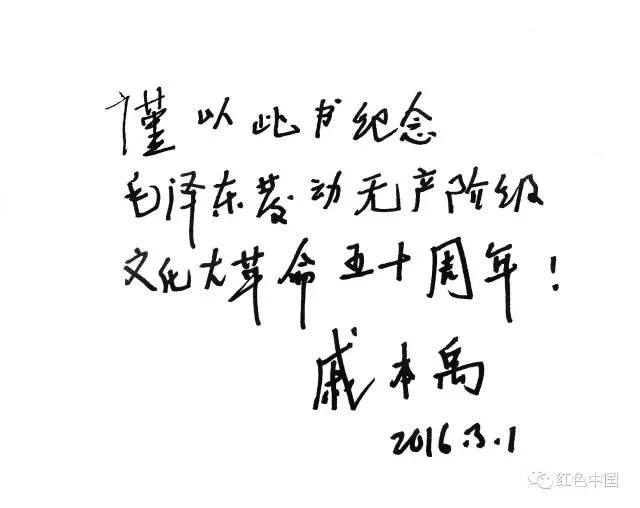 谨以此书纪念
毛泽东发动无产阶级
文化大革命五十周年！
戚本禹
2016.3.1
红色中国